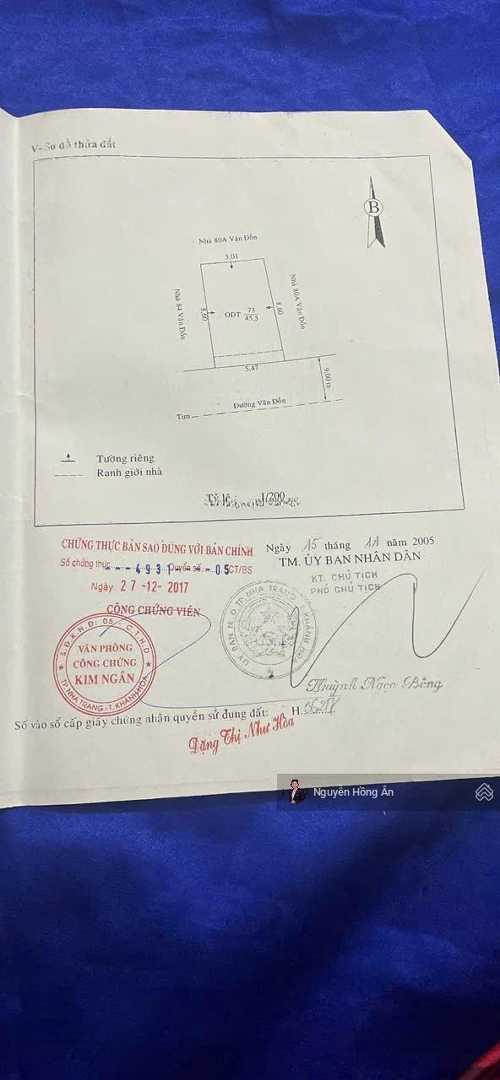 V- Sơ đồ thửa đất
B
Nhà 80A Vân Đồn
5,01
Nhà 84 Vân Đồn
8,60
ODT 73
45,5
8,60
Nhà 80A Vân Đồn
5,47
9,00 m
Tim
Đường Vân Đồn
Tường riêng
Ranh giới nhà
Tỷ lệ 1/200
CHỨNG THỰC BẢN SAO ĐÚNG VỚI BẢN CHÍNH
Số chứng thực 4931 quyển số 05 CT/BS
Ngày 27-12-2017
CÔNG CHỨNG VIÊN
Ngày 15 tháng 11 năm 2005
TM. ỦY BAN NHÂN DÂN
KT. CHỦ TỊCH
PHÓ CHỦ TỊCH
S.Đ.K.H.Đ: 05
VĂN PHÒNG
CÔNG CHỨNG
KIM NGÂN
TP NHA TRANG - T. KHÁNH HÒA
ỦY BAN N.D TP NHA TRANG
KHÁNH HÒA
Huỳnh Ngọc Bông
Số vào sổ cấp giấy chứng nhận quyền sử dụng đất: H
Đặng Thị Như Hòa
Nguyễn Hồng Ân